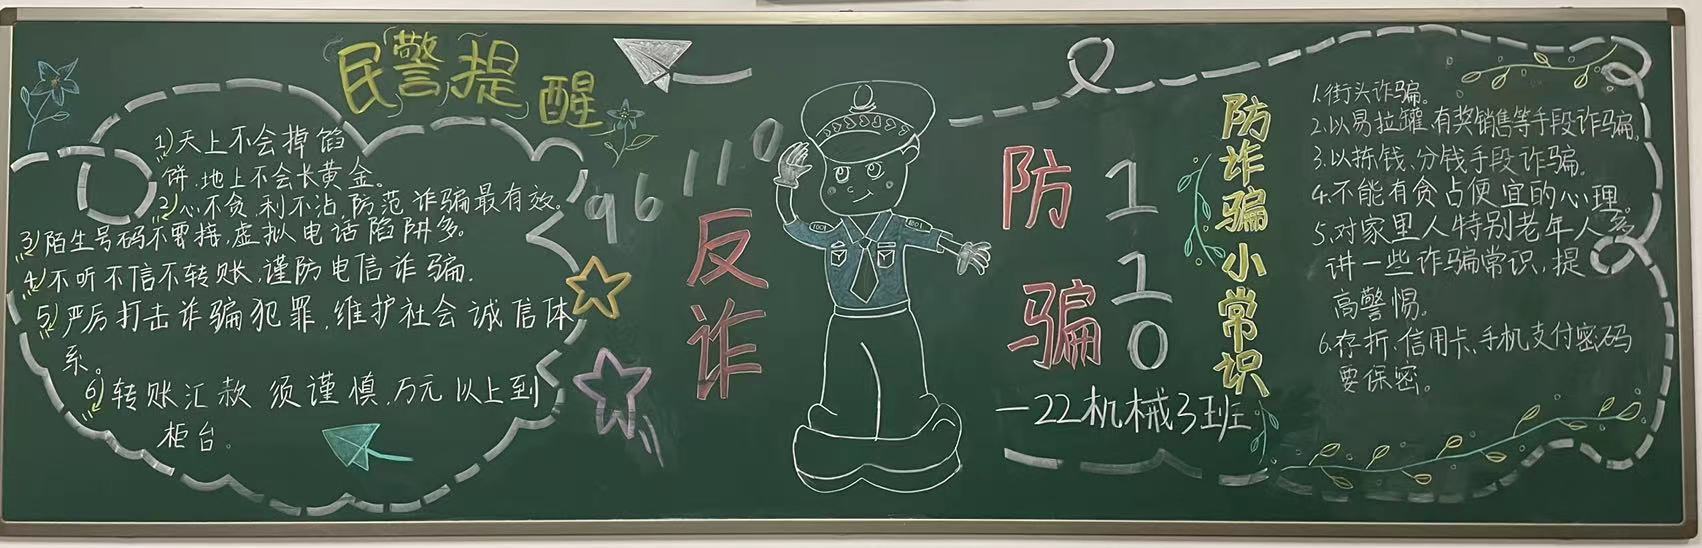 民警提醒
1)天上不会掉馅
饼,地上不会长黄金。
2)心不贪,利不沾,防范诈骗最有效。
3)陌生号码不要接,虚拟电话陷阱多。
4)不听不信不转账,谨防电信诈骗.
5)严厉打击诈骗犯罪,维护社会诚信体
系。
6)转账汇款须谨慎,万元以上到
柜台。
96110
反诈
1001
1001
防骗
110
—22机械3班
防诈骗小常识
1.街头诈骗。
2.以易拉罐、有奖销售等手段诈骗。
3.以拣钱、分钱手段诈骗。
4.不能有贪占便宜的心理。
5.对家里人特别老年人多
讲一些诈骗常识,提
高警惕。
6.存折、信用卡、手机支付密码
要保密。